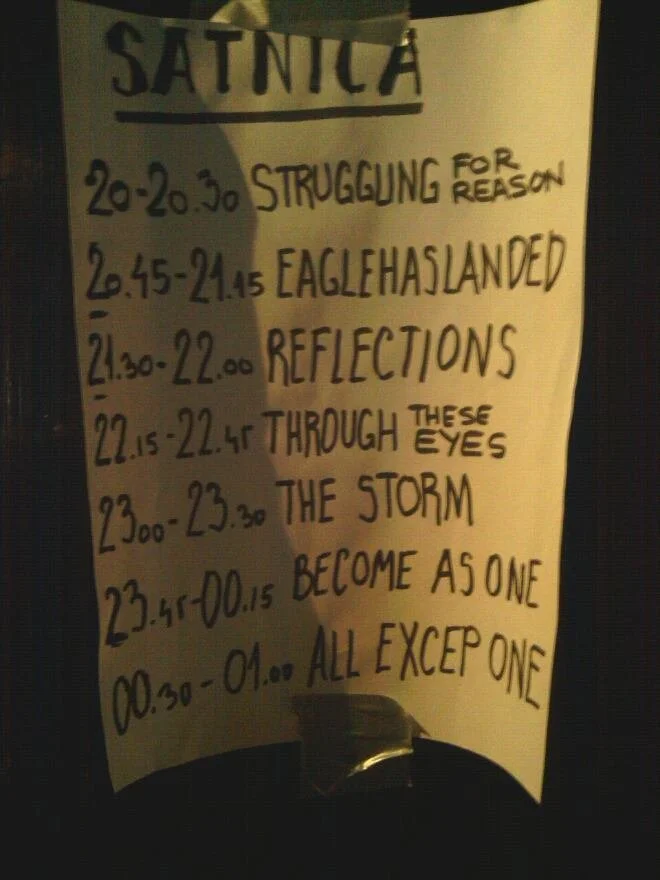 SATNICA
20-20.30 STRUGGLING FOR REASON
20.45-21.15 EAGLEHASLANDED
21.30-22.00 REFLECTIONS
22.15-22.45 THROUGH THESE EYES
2300-23.30 THE STORM
23.45-00.15 BECOME AS ONE
00.30-01.00 ALL EXCEP ONE